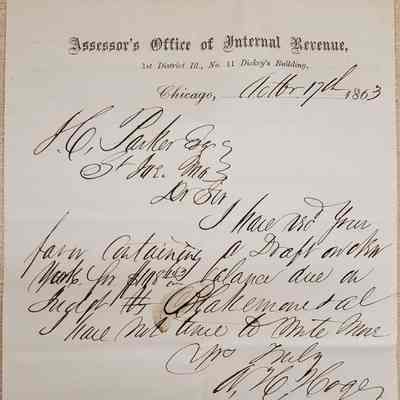 Assessor's Office of Internal Revenue,
1st District Ill., No. 11 Dickey's Building,
Chicago, Octbr 17th 1863
J. C. Parker Esq
St Joe. Mo
Dr Sir
I have recd your
favor containing a Draft on New
York for balance due on
Judgt Blakemore et al
I have not time to write more
Yrs Truly
A. H. Hoge